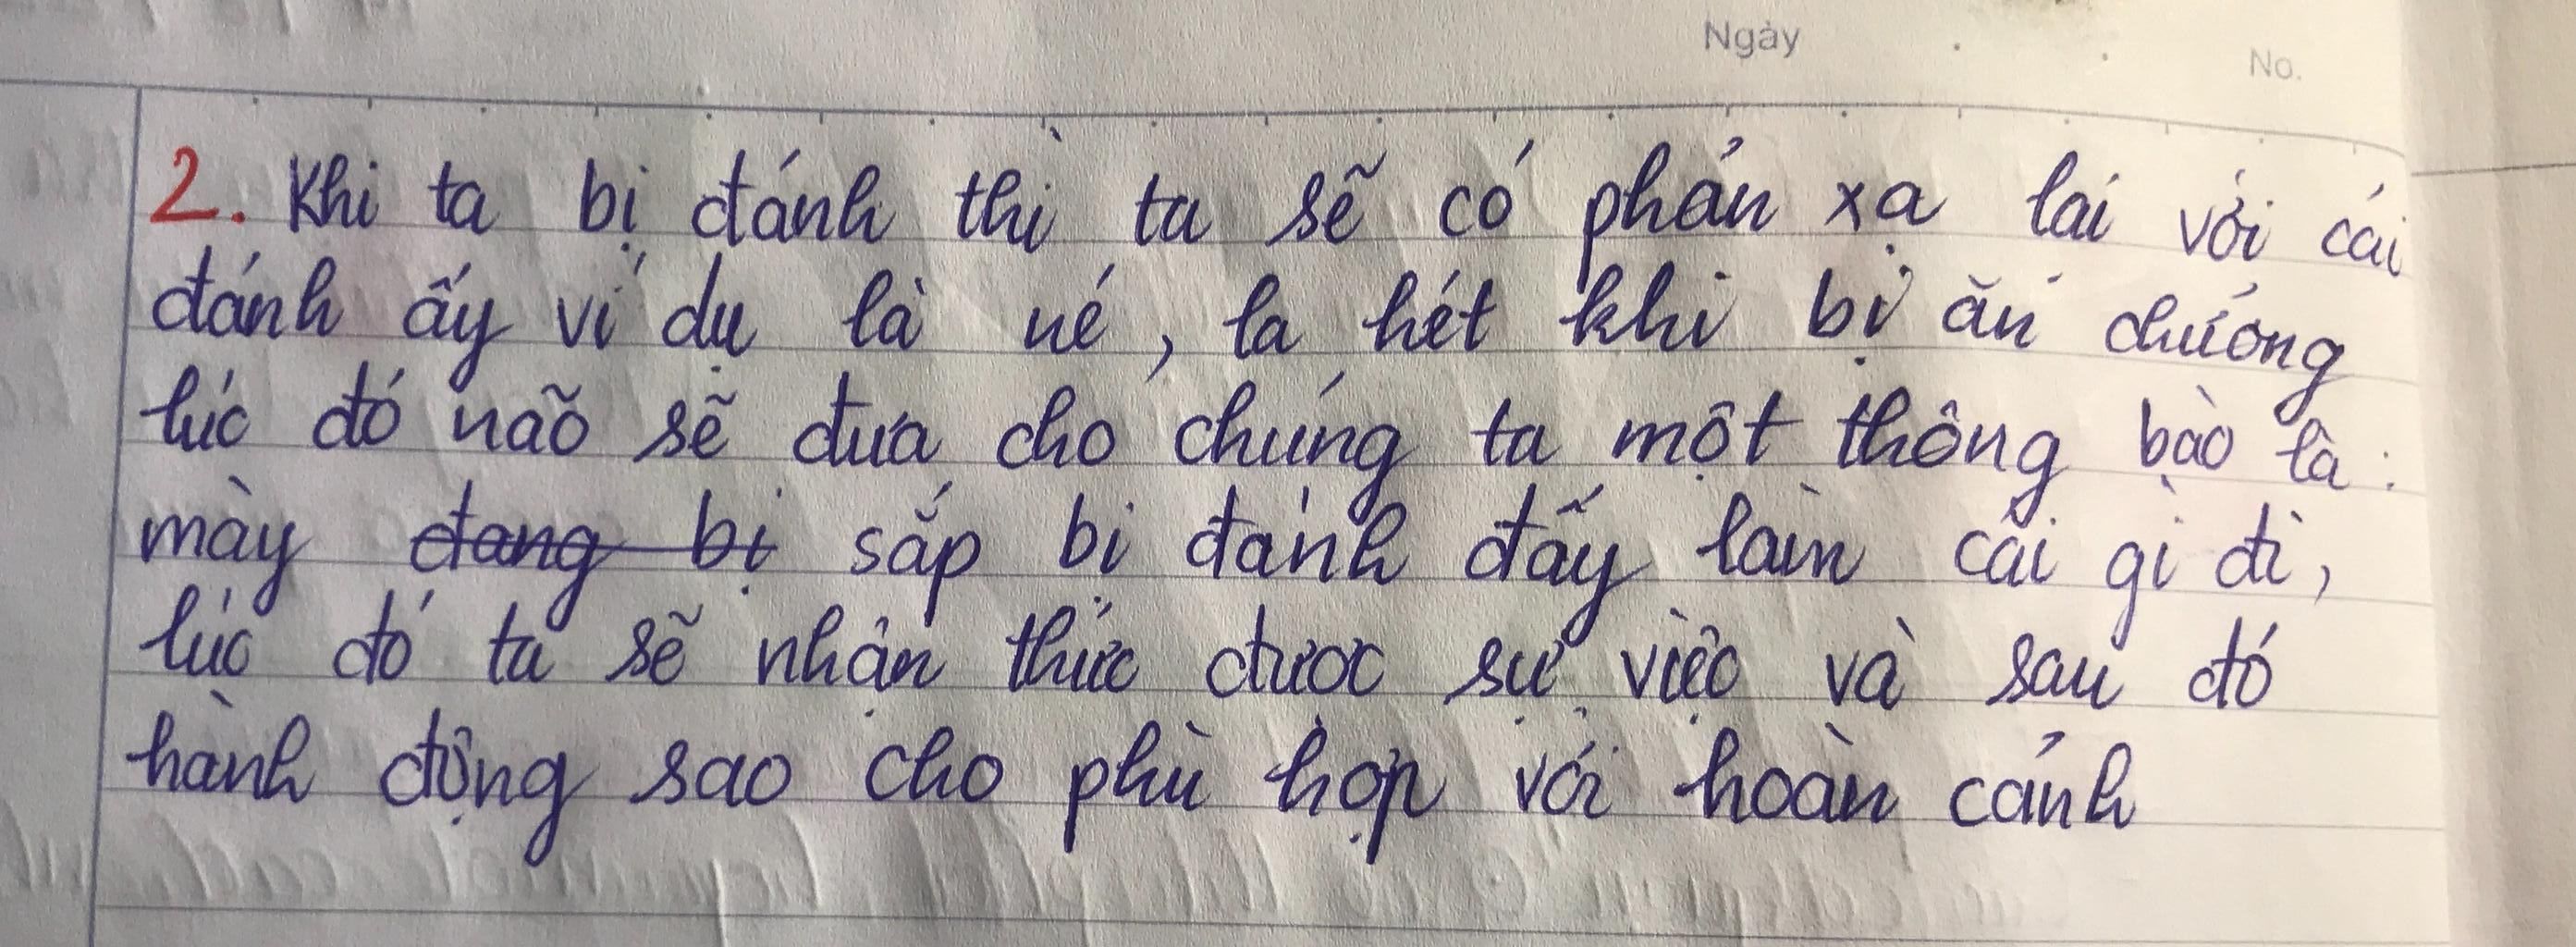 Ngày
No.
2. Khi ta bị đánh thì ta sẽ có phản xạ lại với cái
đánh ấy ví dụ là né, la hét khi bị ăn chưởng
lúc đó não sẽ đưa cho chúng ta một thông báo là:
mày đang bị sắp bị đánh đấy làm cái gì đi,
lúc đó ta sẽ nhận thức được sự việc và sau đó
hành động sao cho phù hợp với hoàn cảnh